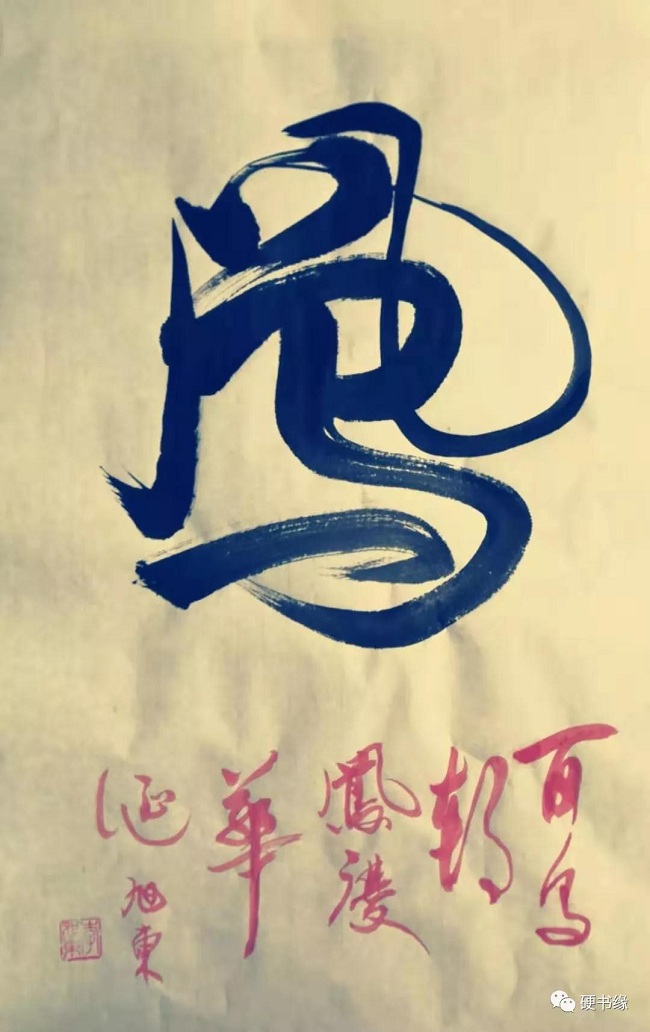 百鸟
朝
鳳慶
華
诞
旭東
硬书缘